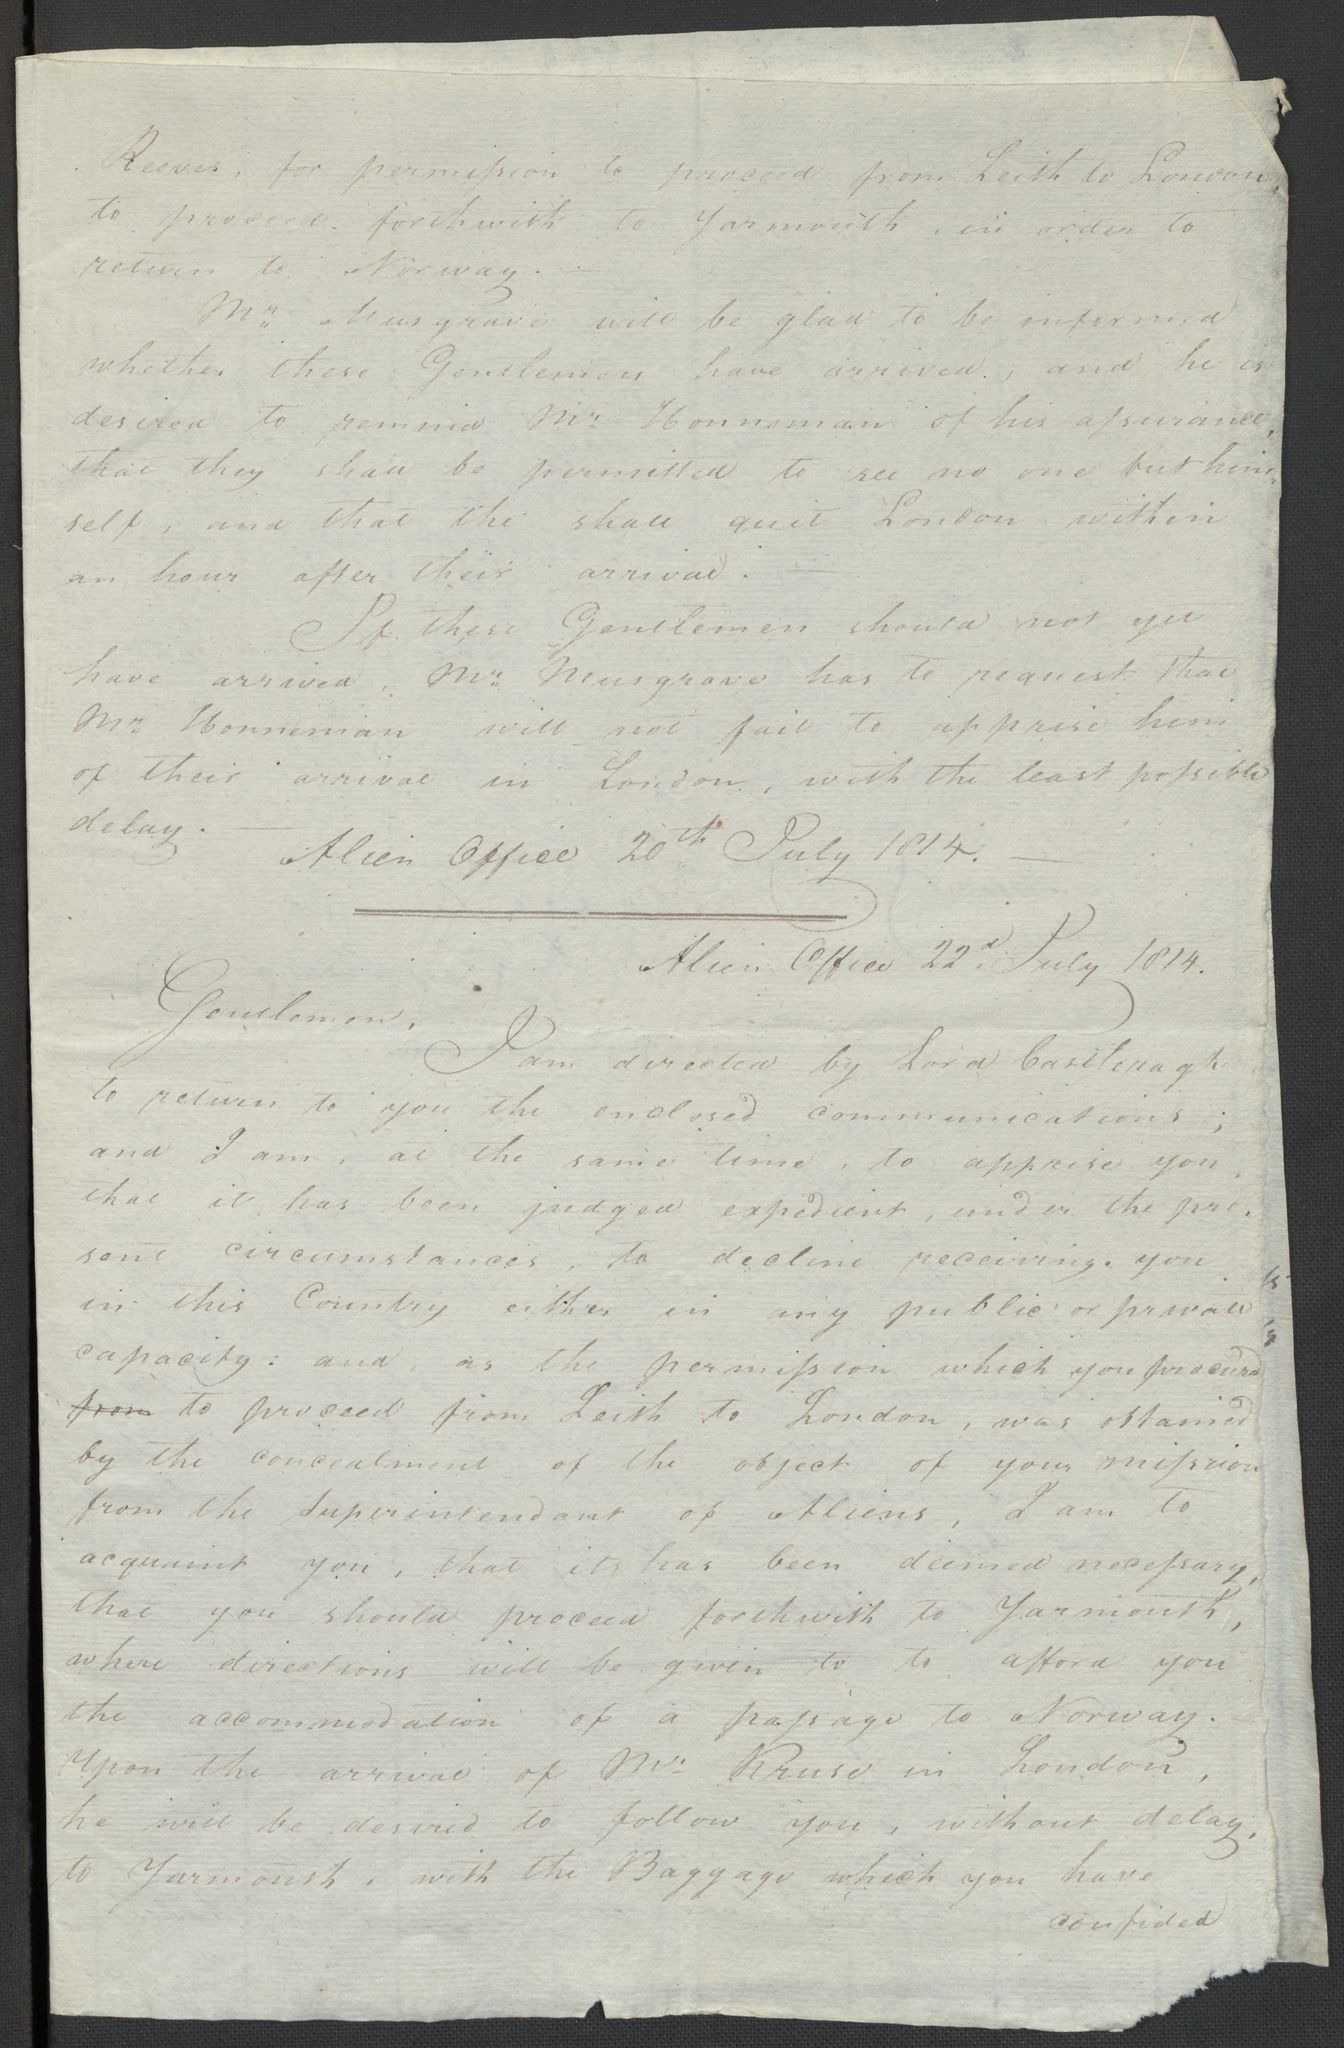 Reeves, for permission to proceed from Leith to London,
to proceed forthwith to Yarmouth, in order to
return to Norway. —
Mr. Musgrave will be glad to be informed
whether these Gentlemen have arrived, and he is
desired to remind Mr. Honneman of his assurance,
that they shall be permitted to see no one but him-
self, and that the shall quit London within
an hour after their arrival. —
If these Gentlemen should not yet
have arrived, Mr. Musgrave has to request that
Mr. Honneman will not fail to apprise him
of their arrival in London, with the least possible
delay. —
Alien Office 20th July 1814. —
Alien Office 22d July 1814.
Gentlemen,
I am directed by Lord Castleragh
to return to you the enclosed communications;
and I am, at the same time, to apprise you,
that it has been judged expedient, under the pre-
sent circumstances, to decline receiving you
in this Country either in any public or private
capacity: and as the permission which you procured
from to proceed from Leith to London, was obtained
by the concealment of the object of your mission
from the Superintendant of Aliens, I am to
acquaint you, that it has been deemed necessary,
that you should proceed forthwith to Yarmouth,
where directions will be given to to afford you
the accommodation of a passage to Norway.
Upon the arrival of Mr. Kruse in London,
he will be desired to follow you, without delay,
to Yarmouth, with the Baggage which you have
confided